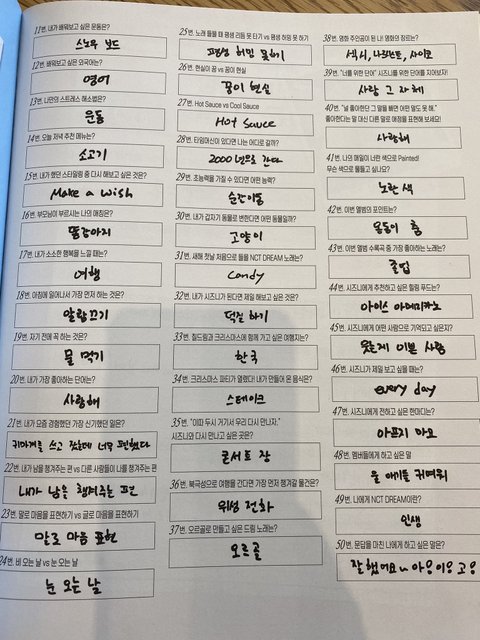 11번. 내가 배워보고 싶은 운동은?
스노우 보드
12번. 배워보고 싶은 외국어는?
영어
13번. 나만의 스트레스 해소법은?
운동
14번. 오늘 저녁 추천 메뉴는?
소고기
15번. 내가 했던 스타일링 중 다시 해보고 싶은 것은?
Make a wish
16번. 부모님이 부르시는 나의 애칭은?
똥강아지
17번. 내가 소소한 행복을 느낄 때는?
여행
18번. 아침에 일어나서 가장 먼저 하는 것은?
알람끄기
19번. 자기 전에 꼭 하는 것은?
물 먹기
20번. 내가 가장 좋아하는 단어는?
사랑해
21번. 내가 요즘 경험했던 가장 신기했던 일은?
귀마개를 쓰고 잤는데 너무 편했다
22번. 내가 남을 챙겨주는 편 vs 다른 사람들이 나를 챙겨주는 편
내가 남을 챙겨주는 편
23번. 말로 마음을 표현하기 vs 글로 마음을 표현하기
말로 마음 표현
24번. 비 오는 날 vs 눈 오는 날
눈 오는 날
25번. 노래 들을 때 평생 리듬 못 타기 vs 평생 허밍 못 하기
평생 허밍 못하기
26번. 현실이 꿈 vs 꿈이 현실
꿈이 현실
27번. Hot Sauce vs Cool Sauce
Hot Sauce
28번. 타임머신이 있다면 나는 어디로 갈까?
2000년으로 간다
29번. 초능력을 가질 수 있다면 어떤 능력?
순간이동
30번. 내가 갑자기 동물로 변한다면 어떤 동물일까?
고양이
31번. 새해 첫날 처음으로 들을 NCT DREAM 노래는?
Candy
32번. 내가 시즈니가 된다면 제일 해보고 싶은 것은?
덕질 하기
33번. 칠드림과 크리스마스에 함께 가고 싶은 여행지는?
한국
34번. 크리스마스 파티가 열렸다! 내가 만들어 온 음식은?
스테이크
35번. "이따 두시 거기서 우리 다시 만나자."
시즈니와 다시 만나고 싶은 곳은?
콘서트 장
36번. 북극성으로 여행을 간다면 가장 먼저 챙겨갈 물건은?
위성 전화
37번. 오르골로 만들고 싶은 드림 노래는?
오르골
38번. 영화 주인공이 된 나! 영화의 장르는?
섹시, 나르샤트, 사이코
39번. "너를 위한 단어" 시즈니를 위한 단어를 지어보자!
사랑 그 자체
40번. "널 좋아한단 그 말을 빼면 어떤 말도 못 해."
좋아한다는 말 대신 다른 말로 애정을 표현해 보세요!
사랑해
41번. 나의 매일이 너란 색으로 Painted!
무슨 색으로 물들고 싶나요?
노란 색
42번. 이번 앨범의 포인트는?
용둥이 춤
43번. 이번 앨범 수록곡 중 가장 좋아하는 노래는?
졸업
44번. 시즈니에게 추천하고 싶은 힐링 푸드는?
아이스 아메리카노
45번. 시즈니에게 어떤 사람으로 기억되고 싶은지?
웃는게 이쁜 사람
46번. 시즈니가 제일 보고 싶을 때는?
every day
47번. 시즈니에게 전하고 싶은 한마디는?
아프지 마요
48번. 멤버들에게 하고 싶은 말
울 애기들 귀여워
49번. 나에게 NCT DREAM이란?
인생
50번. 문답을 마친 나에게 하고 싶은 말은?
잘했어요~ 아우이고우